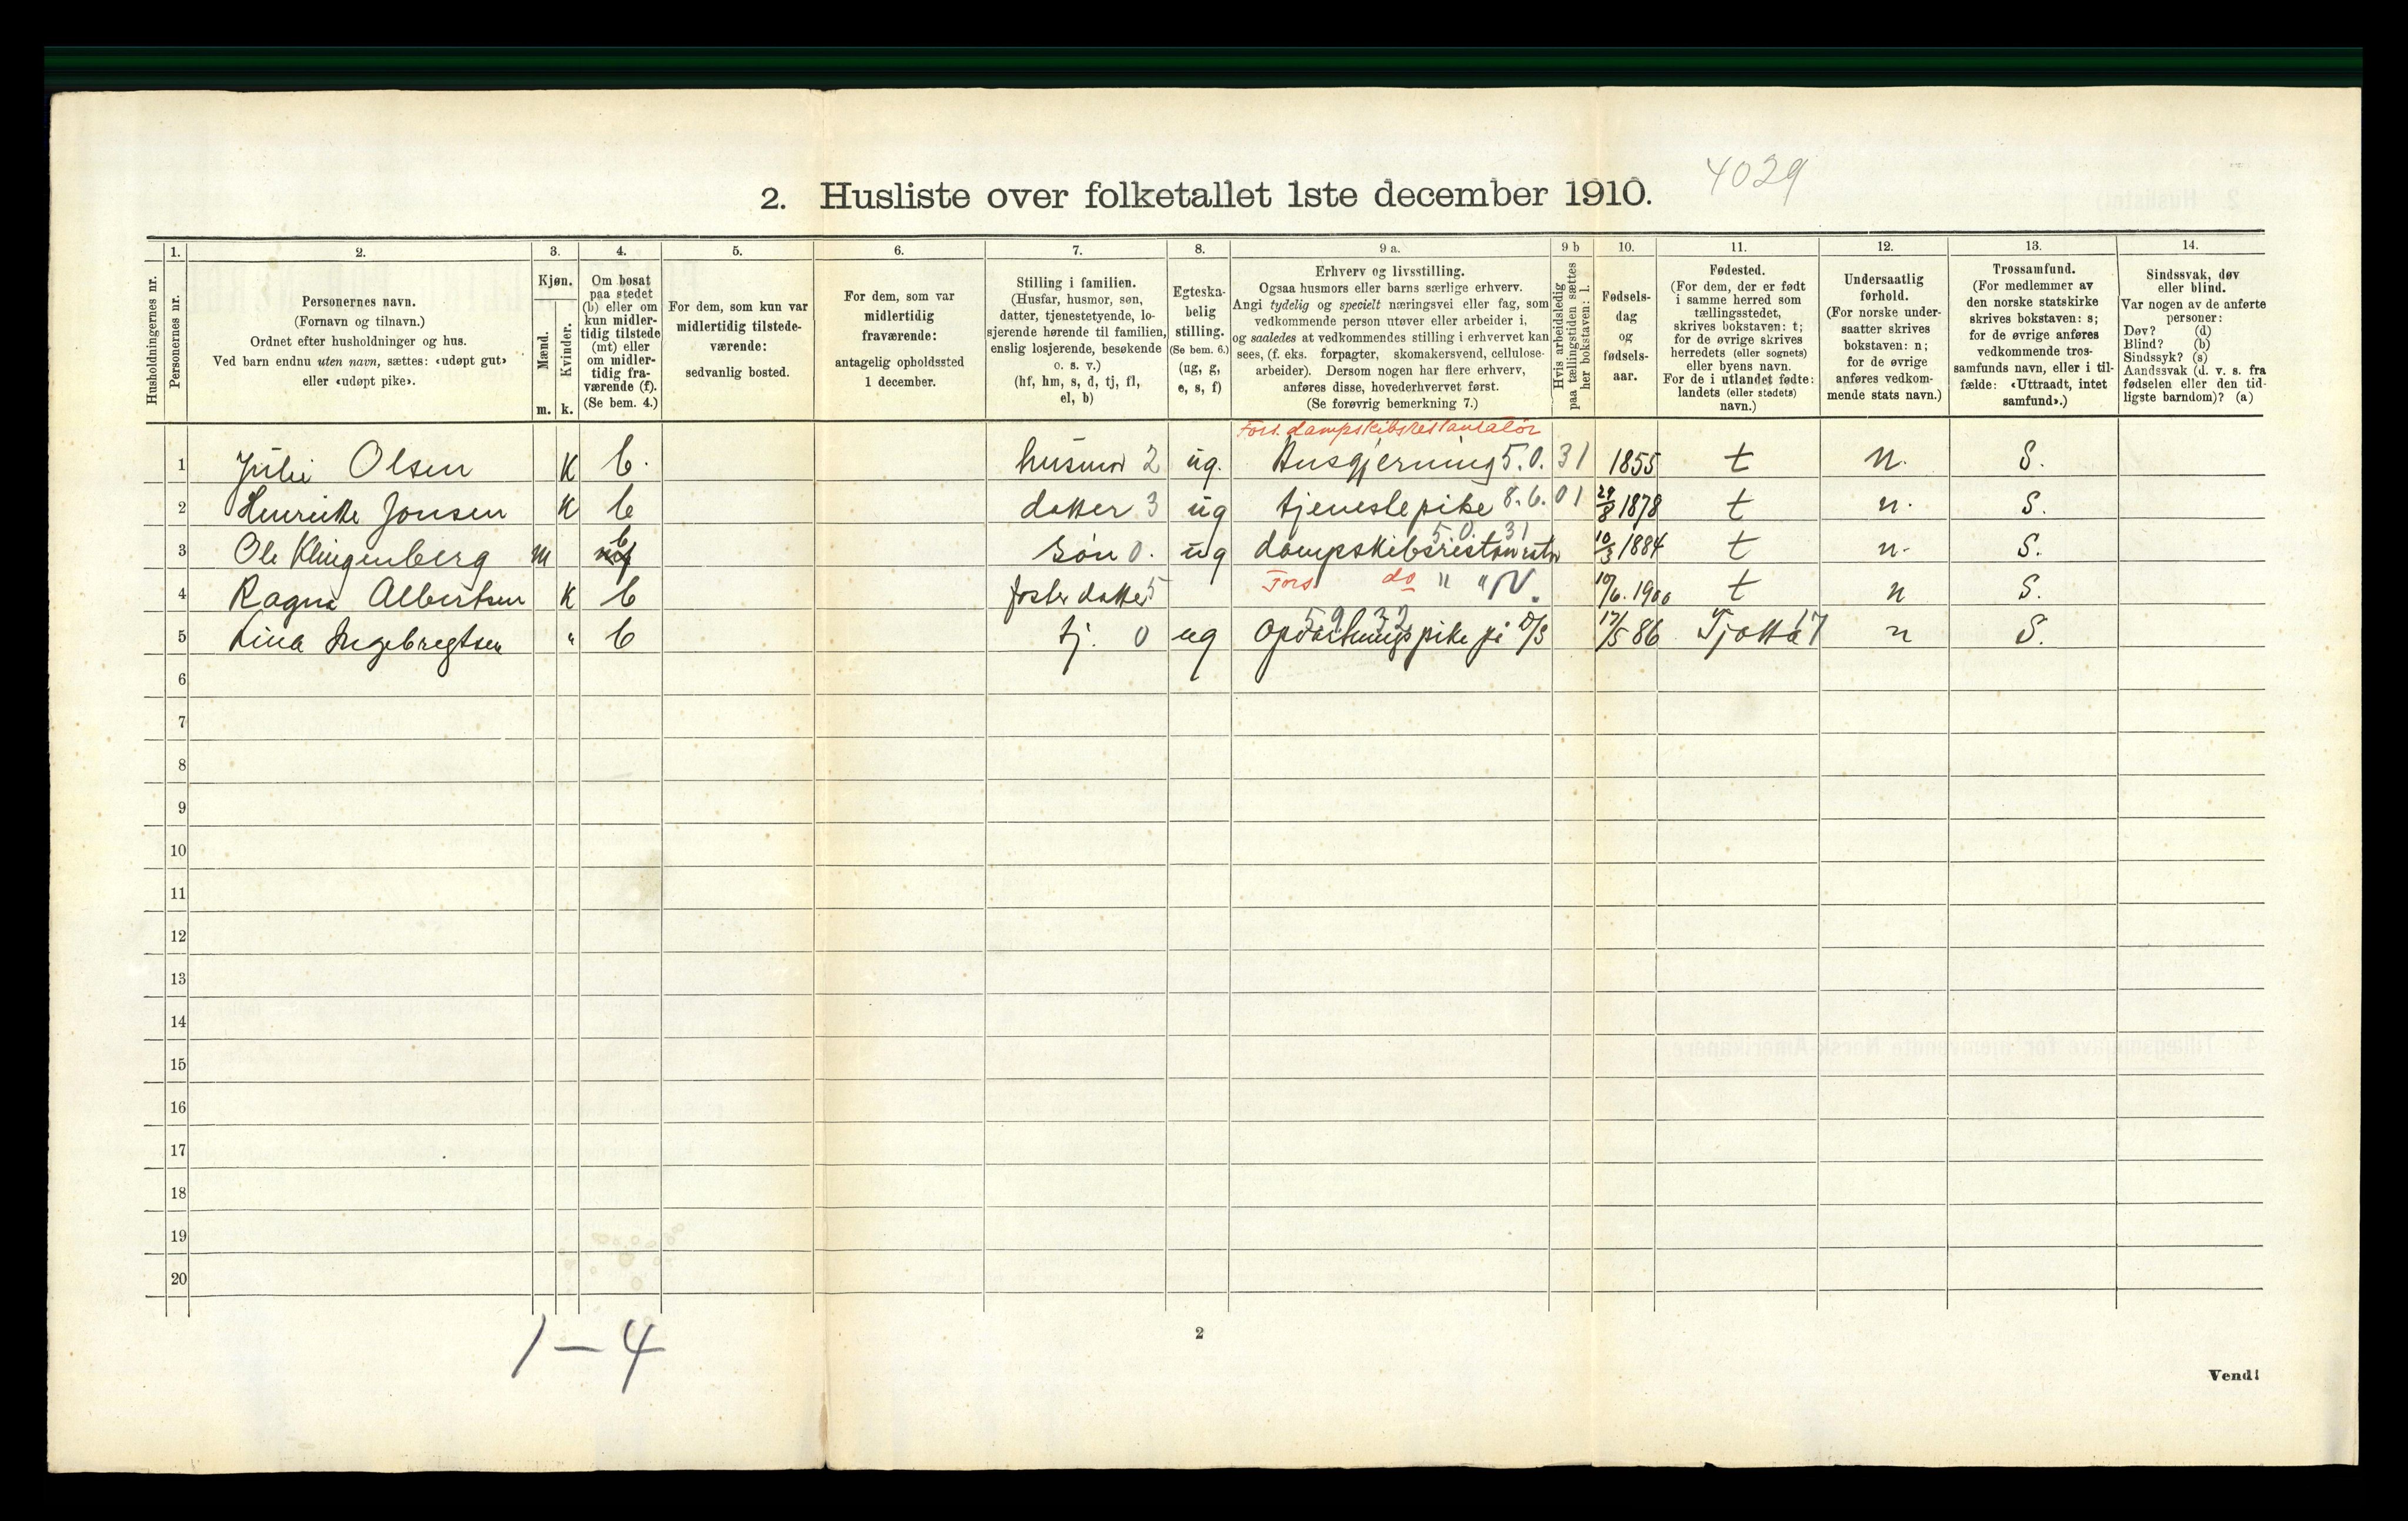 2. Husliste over folketallet 1ste december 1910. 4029
Husholdningernes nr.
1.
Personernes nr.
2.
Personernes navn.
(Fornavn og tilnavn.)
Ordnet efter husholdninger og hus.
Ved barn endnu uten navn, sættes: «udøpt gut»
eller «udøpt pike».
3.
Kjøn.
Mænd.
m.
Kvinder.
k.
4.
Om bosat
paa stedet
(b) eller om
kun midler-
tidig tilstede
(mt) eller
om midler-
tidig fra-
værende (f).
(Se bem. 4.)
5.
For dem, som kun var
midlertidig tilstede-
værende:
sedvanlig bosted.
6.
For dem, som var
midlertidig
fraværende:
antagelig opholdssted
1 december.
7.
Stilling i familien.
(Husfar, husmor, søn,
datter, tjenestetyende, lo-
sjerende hørende til familien,
enslig losjerende, besøkende
o. s. v.)
(hf, hm, s, d, tj, fl,
el, b)
8.
Egteska-
belig
stilling.
(Se bem. 6.)
(ug, g,
e, s, f)
9 a.
Erhverv og livsstilling.
Ogsaa husmors eller barns særlige erhverv.
Angi tydelig og specielt næringsvei eller fag, som
vedkommende person utøver eller arbeider i,
og saaledes at vedkommendes stilling i erhvervet kan
sees, (f. eks. forpagter, skomakersvend, cellulose-
arbeider). Dersom nogen har flere erhverv,
anføres disse, hovederhvervet først.
(Se forøvrig bemerkning 7.)
9 b
Hvis arbeidsledig
paa tællingstiden sættes
her bokstaven: l.
10.
Fødsels-
dag
og
fødsels-
aar.
11.
Fødested.
(For dem, der er født
i samme herred som
tællingsstedet,
skrives bokstaven: t;
for de øvrige skrives
herredets (eller sognets)
eller byens navn.
For de i utlandet fødte:
landets (eller stedets)
navn.)
12.
Undersaatlig
forhold.
(For norske under-
saatter skrives
bokstaven: n;
for de øvrige
anføres vedkom-
mende stats navn.)
13.
Trossamfund.
(For medlemmer av
den norske statskirke
skrives bokstaven: s;
for de øvrige anføres
vedkommende tros-
samfunds navn, eller i til-
fælde: «Uttraadt, intet
samfund».)
14.
Sindssvak, døv
eller blind.
Var nogen av de anførte
personer:
Døv? (d)
Blind? (b)
Sindssyk? (s)
Aandssvak (d. v. s. fra
fødselen eller den tid-
ligste barndom)? (a)
Fors. dampskibsrestauratør
1 Julie Olsen K b. husmor 2 ug. Husgjerning 5.0. 31 1855 t n. S.
2 Henrikke Jonsen K b datter 3 ug tjenestepike 8.6. 01 29/8 1878 t n. S.
b 5.0. 31
3 Ole Klingenberg m søn 0. ug dampskibsrestauratør 10/3 1884 t n. S.
4 Ragna Albertsen K b foster datter 5 Fors do " " N. 10/6. 1900 t n S.
59 32
5 Lina Ingebregtsen " b tj. 0 ug Opvartningspike på D/S 17/5 86 Tjøtta 17 n S.
6
7
8
9
10
11
12
13
14
15
16
17
18
19
20
1-4
2
Vend!